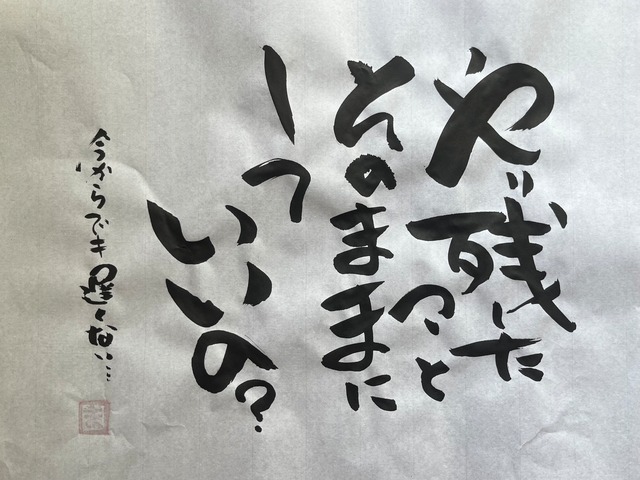 やり残した
こと
そのままに
して
いいの?
今からでも遅くない…